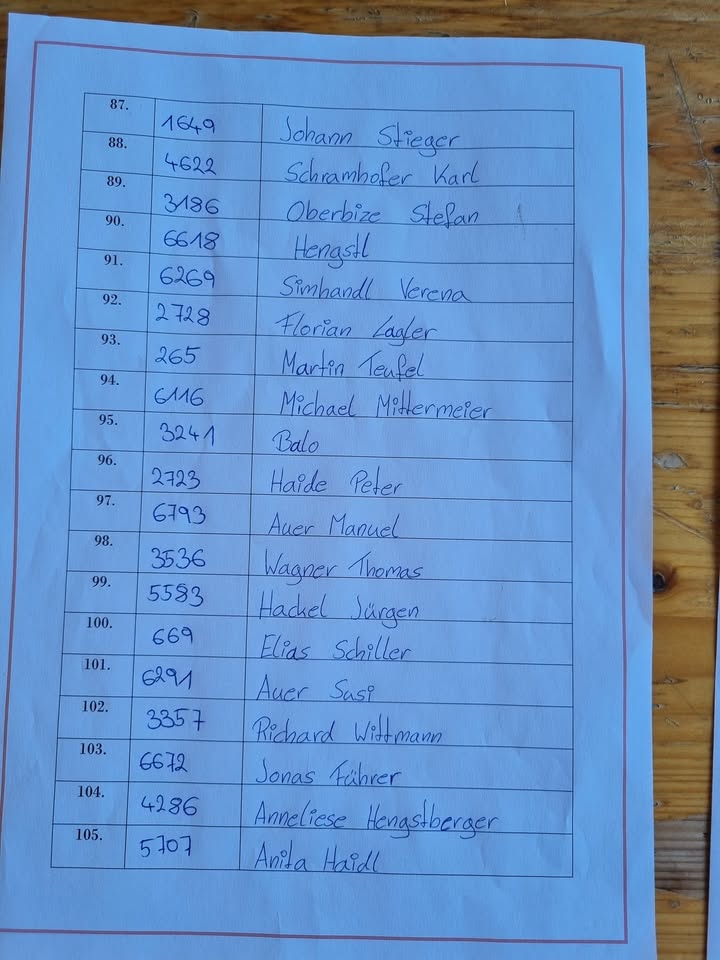 87. 1649 Johann Stieger
88. 4622 Schramhofer Karl
89. 3186 Oberbize Stefan
90. 6618 Hengstl
91. 6269 Simhandl Verena
92. 2728 Florian Lagler
93. 265 Martin Teufel
94. 6116 Michael Mittermeier
95. 3241 Balo
96. 2723 Haide Peter
97. 6793 Auer Manuel
98. 3536 Wagner Thomas
99. 5583 Hackel Jürgen
100. 669 Elias Schiller
101. 6291 Auer Susi
102. 3357 Richard Wittmann
103. 6672 Jonas Führer
104. 4286 Anneliese Hengstberger
105. 5707 Anita Haidl